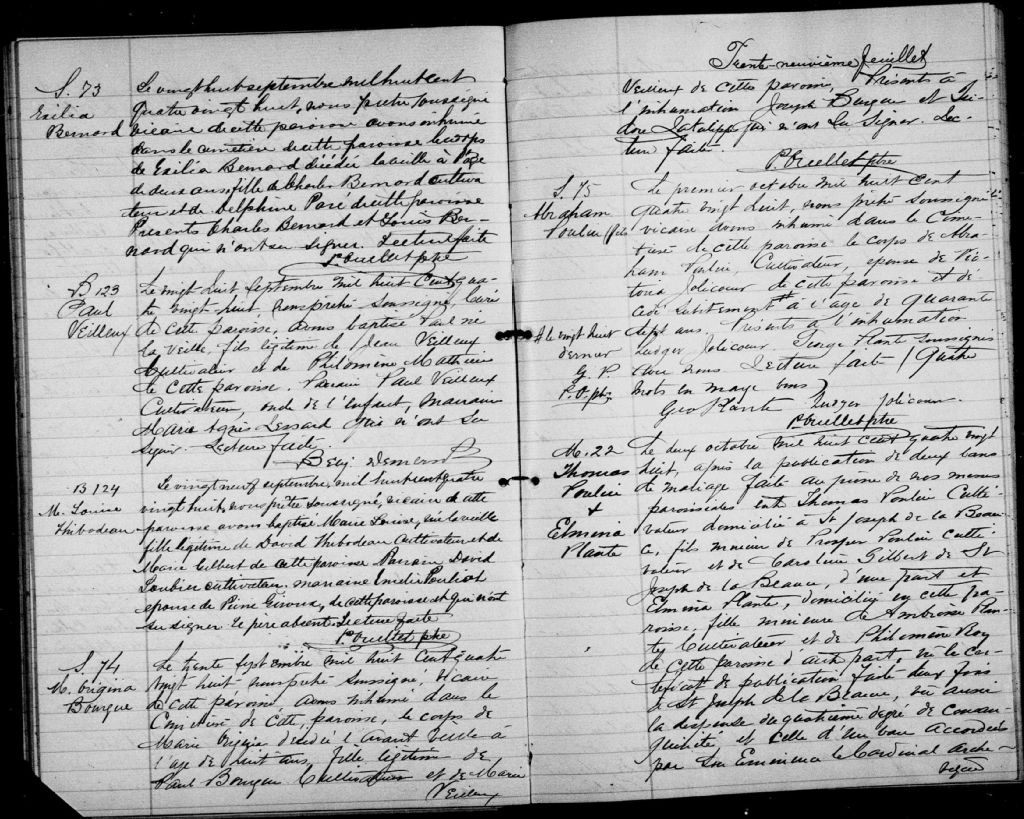 S. 73
Exilia
Bernard
Le vingt huit septembre mil huit cent
quatre vingt huit, nous prêtre soussigné
vicaire de cette paroisse avons inhumé
dans le cimetière de cette paroisse le corps
de Exilia Bernard décédée la veille à l'age
de deux ans, fille de Charles Bernard cultiva
teur et de Delphine Paré de cette paroisse
Presents Charles Bernard et Louis Ber-
nard qui n'ont su signer. Lecture faite
P. Ouellet ptre
B 123
Paul
Veilleux
Le vingt huit septembre mil huit cent qua-
tre vingt huit, nous prêtre soussigné, Curé
de cette paroisse, avons baptisé Paul né
la veille, fils légitime de Jean Veilleux
Cultivateur et de Philomène Mathieu
de cette paroisse. Parrain Paul Veilleux
Cultivateur, oncle de l'enfant, marraine
Marie Agnès Lessard qui n'ont su
signer. Lecture faite
Benj. Demers
B 124
M. Louise
Thibodeau
Le vingt neuf septembre mil huit cent quatre
vingt huit, nous prêtre soussigné, vicaire de cette
paroisse avons baptisé Marie Louise, née la veille
fille légitime de David Thibodeau Cultivateur et de
Marie Gilbert de cette paroisse Parrain David
Loubier cultivateur, marraine Emélie Pouliot
epouse de Pierre Giroux, de cette paroisse et qui n'ont
su signer Le père absent. Lecture faite
P. Ouellet ptre
S. 74
M. Origina
Bourgue
Le trente septembre mil huit cent quatre
vingt huit nous prêtre soussigné, vicaire
de cette paroisse, avons inhumé dans le
Cimetière de cette paroisse, le corps de
Marie décédée l'avant veille à
l'age de huit ans, fille légitime de
Paul Bourgue Cultivateur et de Marie
Veilleux
Trente-neuvième feuillet
Veilleux de cette paroisse, Présents à
l'inhumation Joseph Bourgue et Isi-
dore qui n'ont su signer. Lec-
ture faite.
P. Ouellet ptre
S. 75
Abraham
Poulin
Le premier octobre mil huit cent
quatre vingt huit, nous prêtre soussigné
vicaire avons inhumé dans le Cime-
tière de cette paroisse le corps de Abra-
ham Poulin, Cultivateur, epouse de Vic-
toria Jolicoeur de cette paroisse et dé-
cédé subitement # à l'age de quarante
# le vingt huit
dernier
G. P.
P. O. ptr.
sept ans. Présents à l'inhumation
Ludger Jolicoeur George Plante soussignés
avec nous. Lecture faite / Quatre
mots en marge bons
Geo Plante Ludger Jolicoeur.
P. Ouellet ptre
M. 22
Thomas
Poulin
+
Elmina
Plante
Le deux octobre mil huit cent quatre vingt
huit, après la publication de deux bans
de mariage faite au prone de nos messes
paroissiales entre Thomas Poulin Culti-
vateur domicilié à St Joseph de la Beau-
ce, fils mineur de Prosper Poulin culti-
vateur et de Caroline Gilbert de St
Joseph de la Beauce, d'une part et
Elmina Plante, domiciliée en cette pa-
roisse, fille mineure de Ambroise Plan-
te Cultivateur et de Philomène Roy
de cette paroisse d'autre part; vu le cer-
tificat de publication faite deux fois
à St Joseph de la Beauce, vu aussi
la dispense du quatrième degré de consan-
guinité, et celle d'un ban accordée
par Son Eminence le Cardinal arche-
vêque